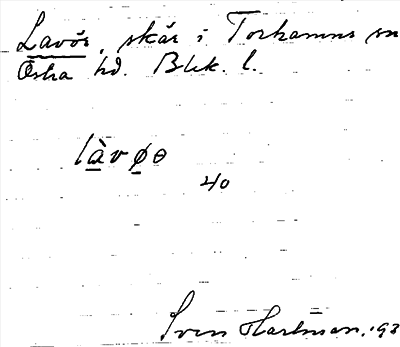 Lavör, skär i Torhamns sn
Östra hd. Blek. l.
làvøө
40
Sven Hartman. 193